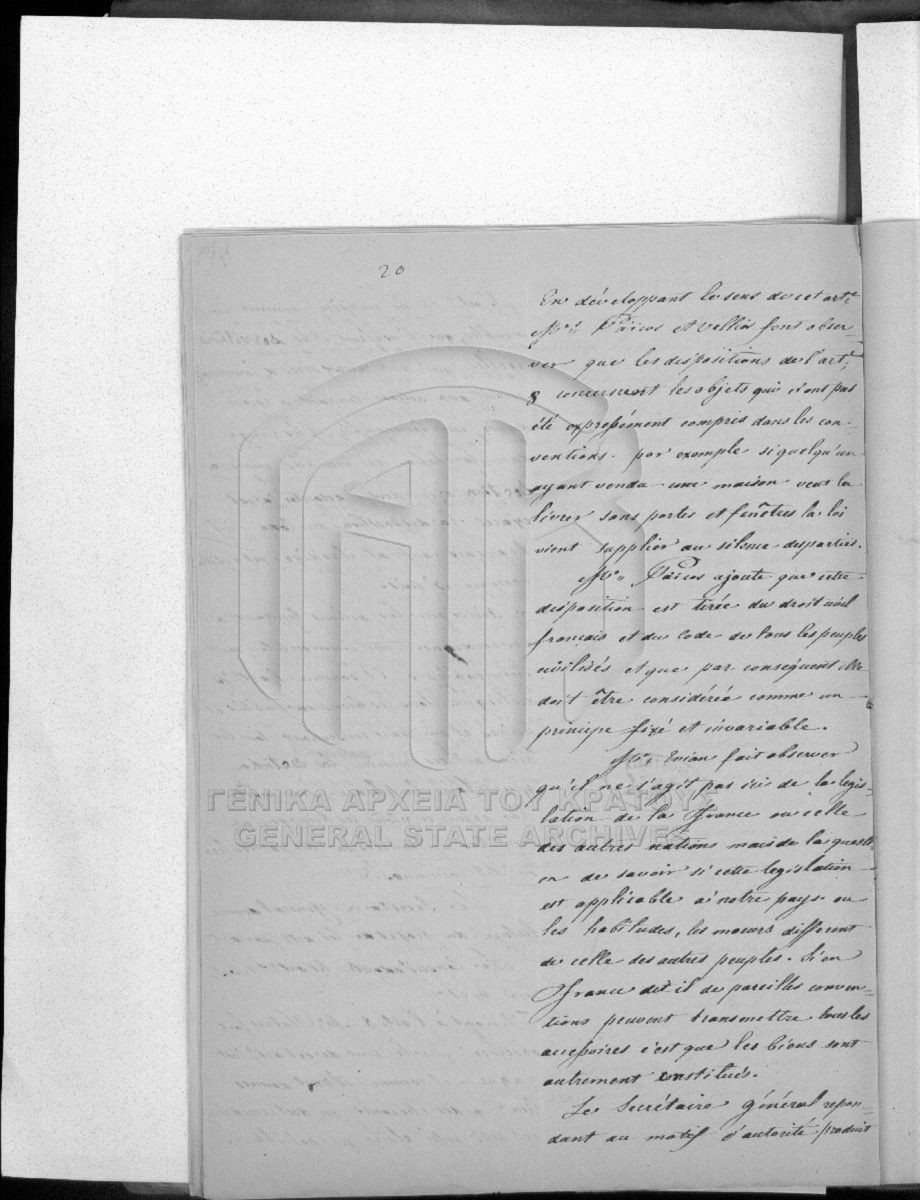 20
En développant le sens de cet art.
Mrs Païcos et Vellios font obser-
ver que les dispositions de l'art.
8 concernent les objets qui n'ont pas
été expressément compris dans les con-
ventions. par exemple si quelqu'un
ayant vendu une maison veut la
livrer sans portes et fenêtres la loi
vient supplier au silence des parties.
Mr. Païcos ajoute que cette
disposition est tirée du droit civil
français et du Code de tous les peuples
civilisés et que par conséquent elle
doit être considérée comme un
principe fixé et invariable.
Mr. Enian fait observer
qu'il ne s'agit pas ici de la legis-
lation de la France ou celle
des autres nations mais de la questi-
on de savoir si cette legislation
est applicable à notre pays ou
les habitudes, les moeurs different
de celle des autres peuples. Si en
France dit il de pareilles conven-
tions peuvent transmettre tous les
accessoires c'est que les biens sont
autrement constitués.
Le Secrétaire général repon-
dant au motif d'autorité produit
ΓΕΝΙΚΑ ΑΡΧΕΙΑ ΤΟΥ ΚΡΑΤΟΥΣ
GENERAL STATE ARCHIVES